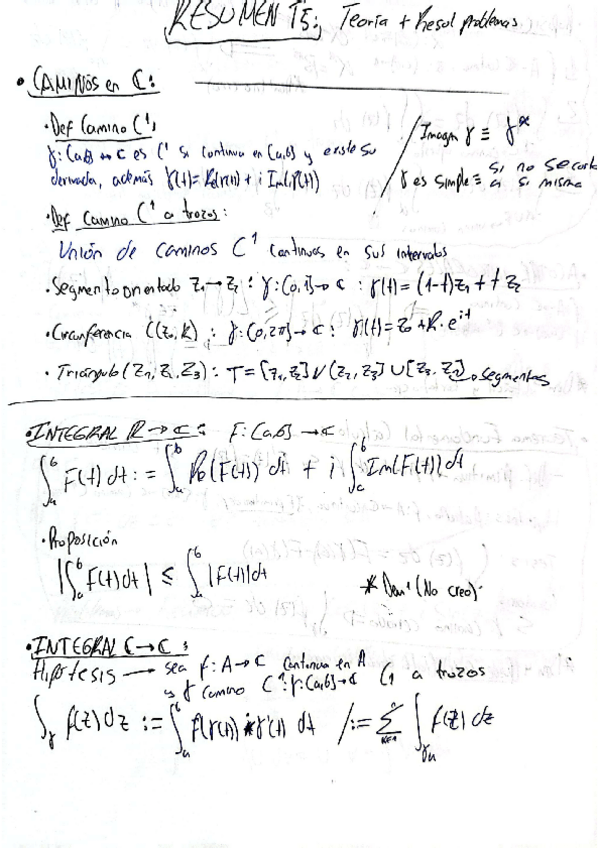 RESUMEN T5: Teoría + Resol problemas
• CAMINOS en ℂ:
• Def Camino C¹:
γ: [a,b] → ℂ es C¹ si continua en [a,b] y existe su
derivada, además γ(t) = Re(γ(t)) + i Im(γ(t))
Imagen γ ≡ γ*
γ es simple ≡ si no se corta
a si misma
• Def Camino C¹ a trozos:
Unión de caminos C¹ continuos en sus intervalos
• Segmento orientado z₁ → z₂ : γ: [0,1] → ℂ : γ(t) = (1-t)z₁ + t z₂
• Circunferencia C(z₀,R) : γ: [0,2π] → ℂ : γ(t) = z₀ + R · e^{it}
• Triángulo (z₁, z₂, z₃) : T = [z₁, z₂] ∪ [z₂, z₃] ∪ [z₃, z₁] → segmentos
• INTEGRAL ℝ → ℂ : F: [a,b] → ℂ
∫_a^b F(t) dt := ∫_a^b Re(F(t)) dt + i ∫_a^b Im(F(t)) dt
• Proposición
|∫_a^b F(t) dt| ≤ ∫_a^b |F(t)| dt
* Dem (No creo).
• INTEGRAL ℂ → ℂ :
Hipótesis → sea f: A → ℂ continua en A
y γ camino C¹: γ: [a,b] → ℂ C1 a trozos
∫_γ f(z) dz := ∫_a^b f(γ(t)) * γ'(t) dt / := Σ_{k=1}^n ∫_{γ_k} f(z) dz